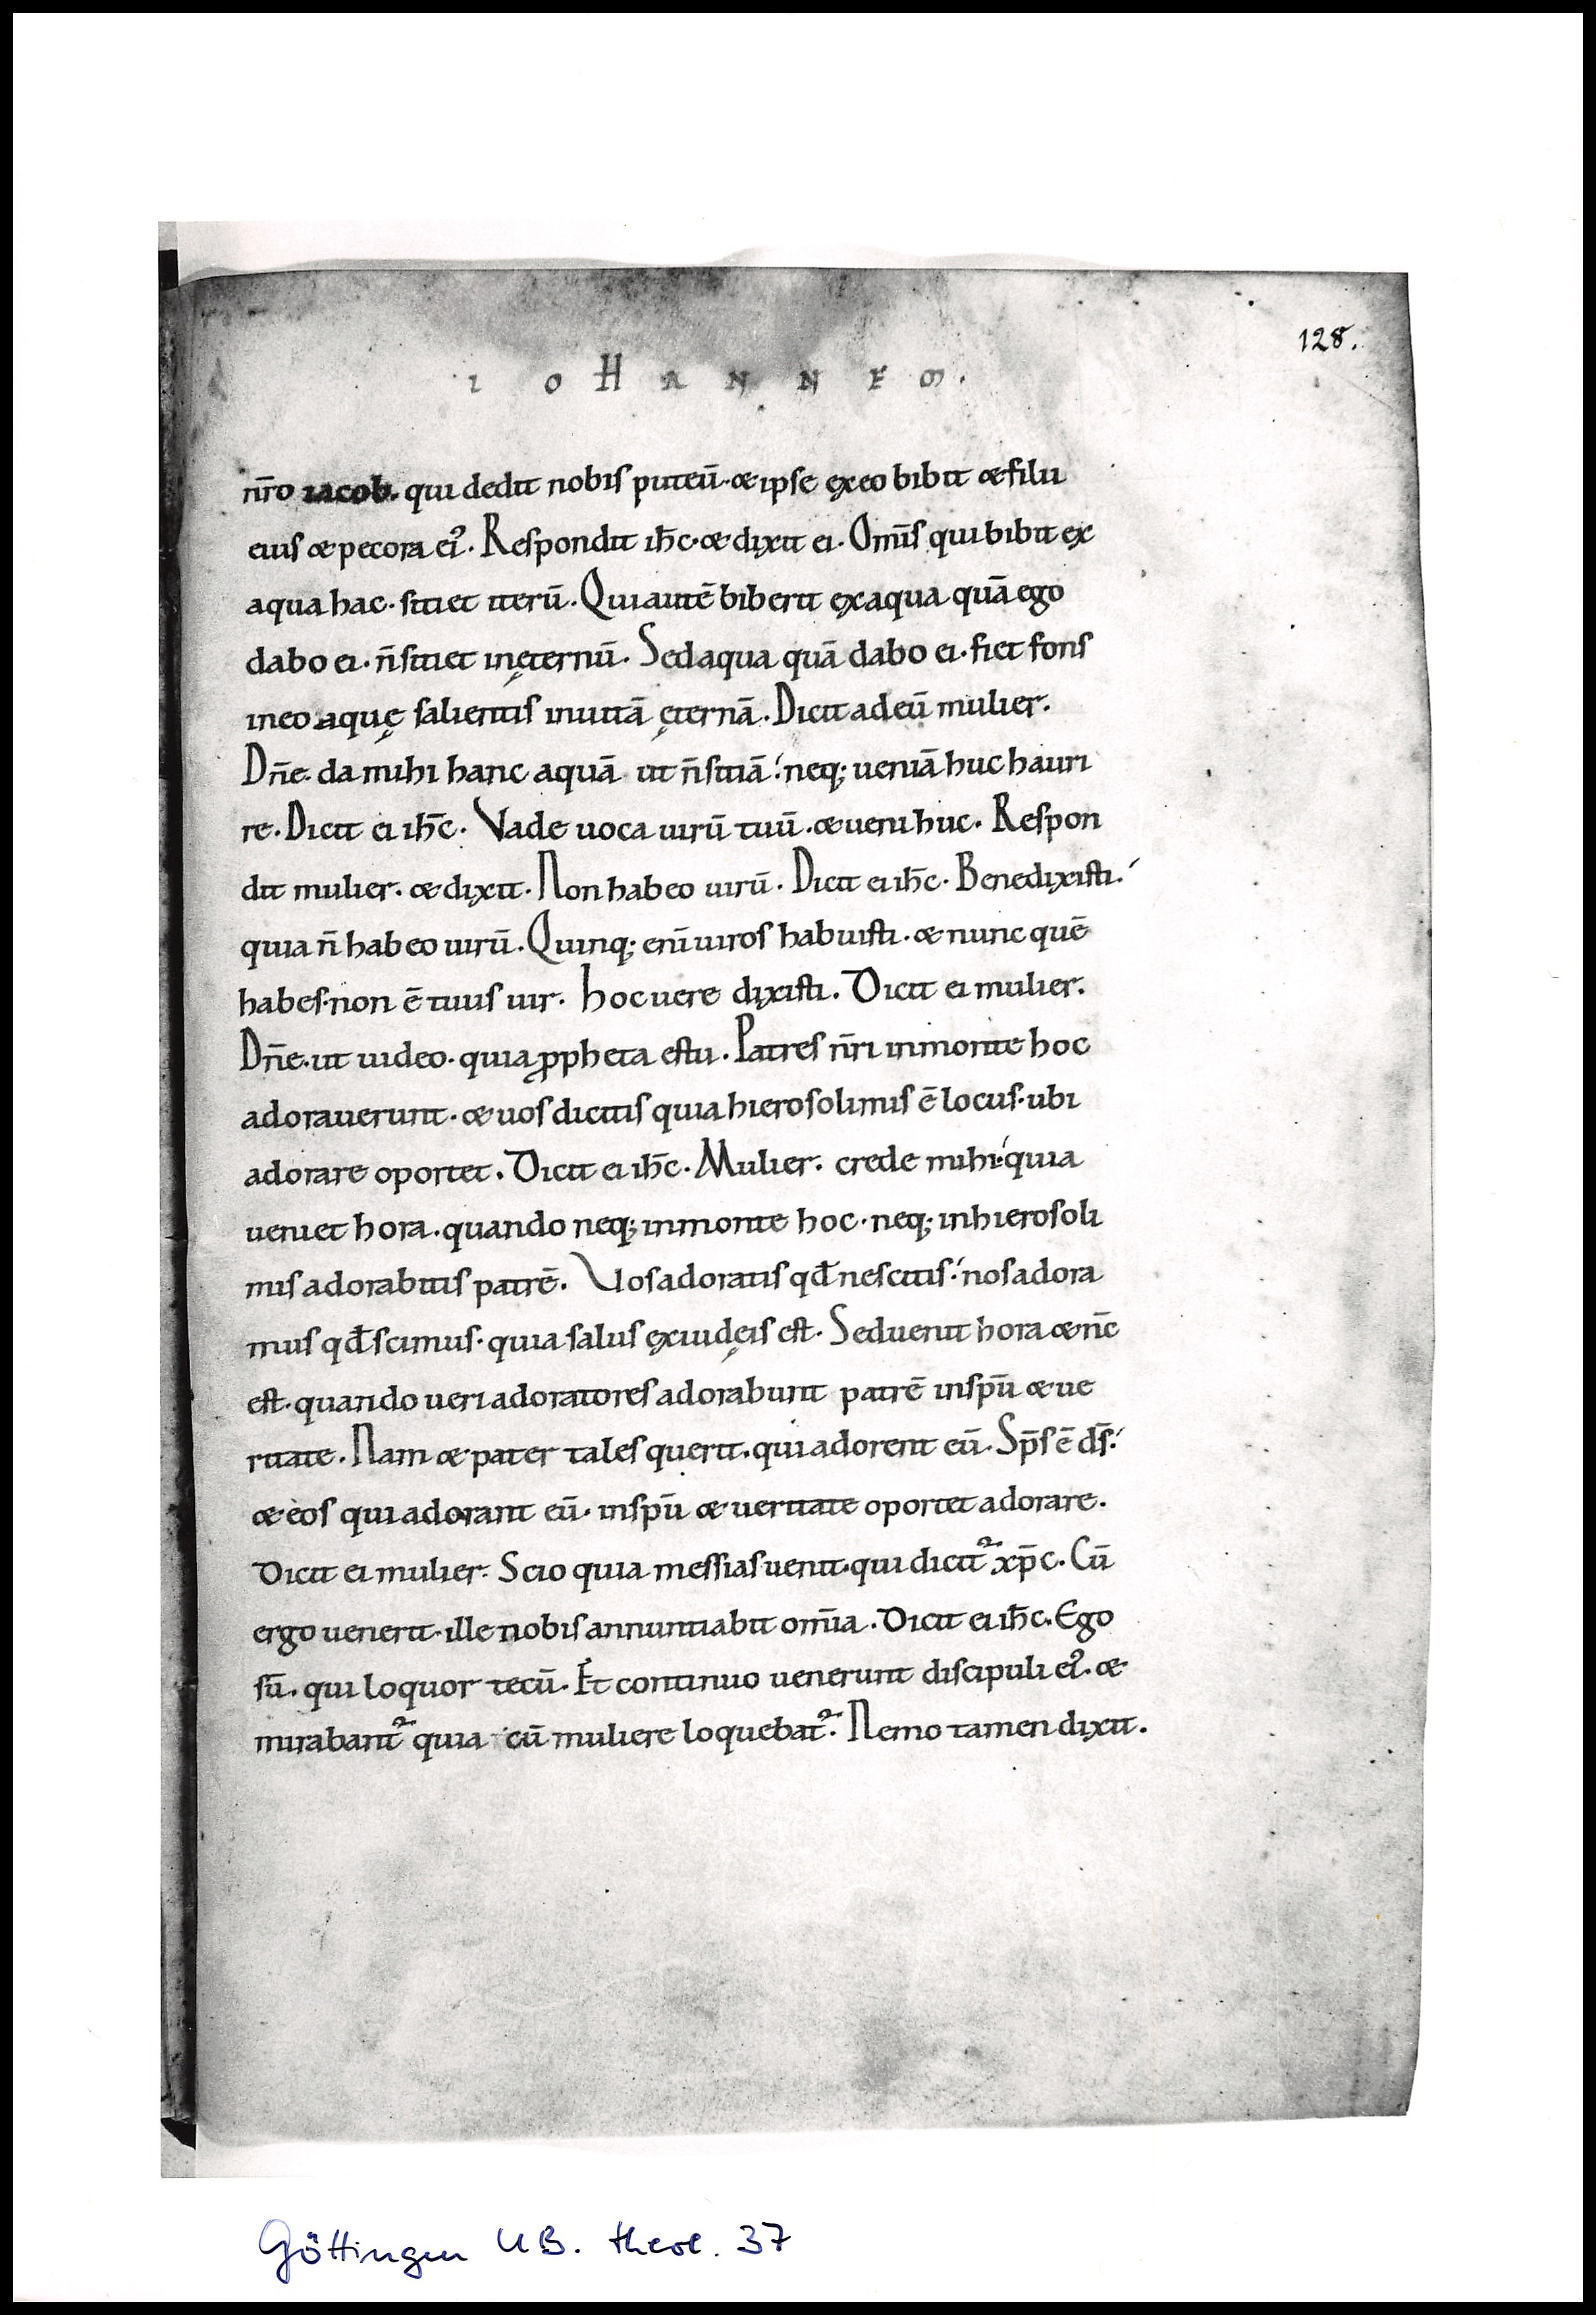 128.
IOHANNEM.
nr̄o iacob. qui dedit nobis puteū. & ipse ex eo bibit & filii
eius & pecora ei⁹. Respondit ih̄c. & dixit ei. Omīs qui bibit ex
aqua hac. sitiet iterū. Qui autē biberit ex aqua quā ego
dabo ei. n̄ sitiet in ęternū. Sed aqua quā dabo ei. fiet fons
in eo aquę salientis in uitā ęternā. Dicit ad eū mulier.
Dn̄e. da mihi hanc aquā ut n̄ sitiā. neq; ueniā huc hauri
re. Dicit ei ih̄c. Vade uoca uirū tuū. & ueni huc. Respon
dit mulier. & dixit. Non habeo uirū. Dicit ei ih̄c. Bene dixisti.
quia n̄ habeo uirū. Quinq; enī uiros habuisti. & nunc quē
habes. non ē tuus uir. hoc uere dixisti. Dicit ei mulier.
Dn̄e. ut uideo. quia ꝓpheta es tu. Patres nr̄i in monte hoc
adorauerunt. & uos dicitis quia hierosolimis ē locus. ubi
adorare oportet. Dicit ei ih̄c. Mulier. crede mihi. quia
ueniet hora. quando neq; in monte hoc. neq; in hierosoli
mis adorabitis patrē. Vos adoratis qd̄ nescitis. nos adora
mus qd̄ scimus. quia salus ex iudęis est. Sed uenit hora & nc̄
est. quando ueri adoratores adorabunt patrē in spū & ue
ritate. Nam & pater tales querit. qui adorent eū. Sp̄s ē ds̄.
& eos qui adorant eū. in spū & ueritate oportet adorare.
Dicit ei mulier. Scio quia messias uenit. qui dicit² xp̄c. Cū
ergo uenerit. ille nobis annuntiabit om̄ia. Dicit ei ih̄c. Ego
sū. qui loquor tecū. Et continuo uenerunt discipuli ei⁹. &
mirabant² quia cū muliere loquebat². Nemo tamen dixit.
Göttingen UB. theol. 37